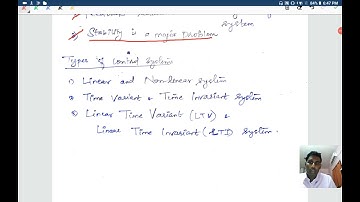 84% 6:47 PM
System
Stability is a major problem
Types of Control System
① Linear and Nonlinear System
② Time Variant & Time Invariant System
③ Linear Time Variant (LTV) &
Linear Time Invariant (LTI) System.